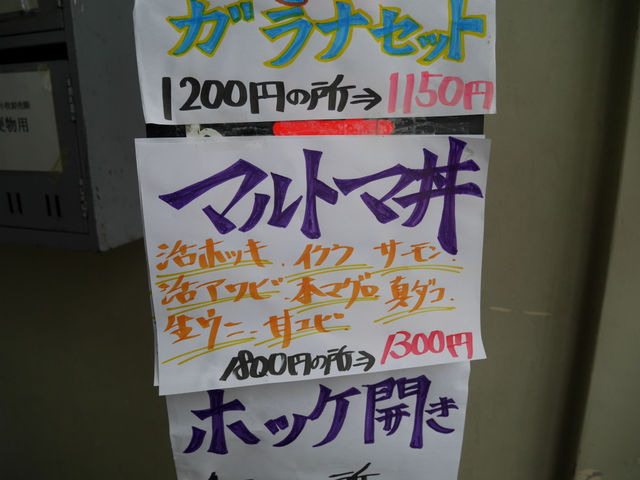 ガラナセット
1200円の所⇒1150円
マルトマ丼
活ホッキ．イクラ サーモン．
活アワビ．本マグロ 真ダコ．
生ウニ．甘エビ
1800円の所⇒1300円
ホッケ開き